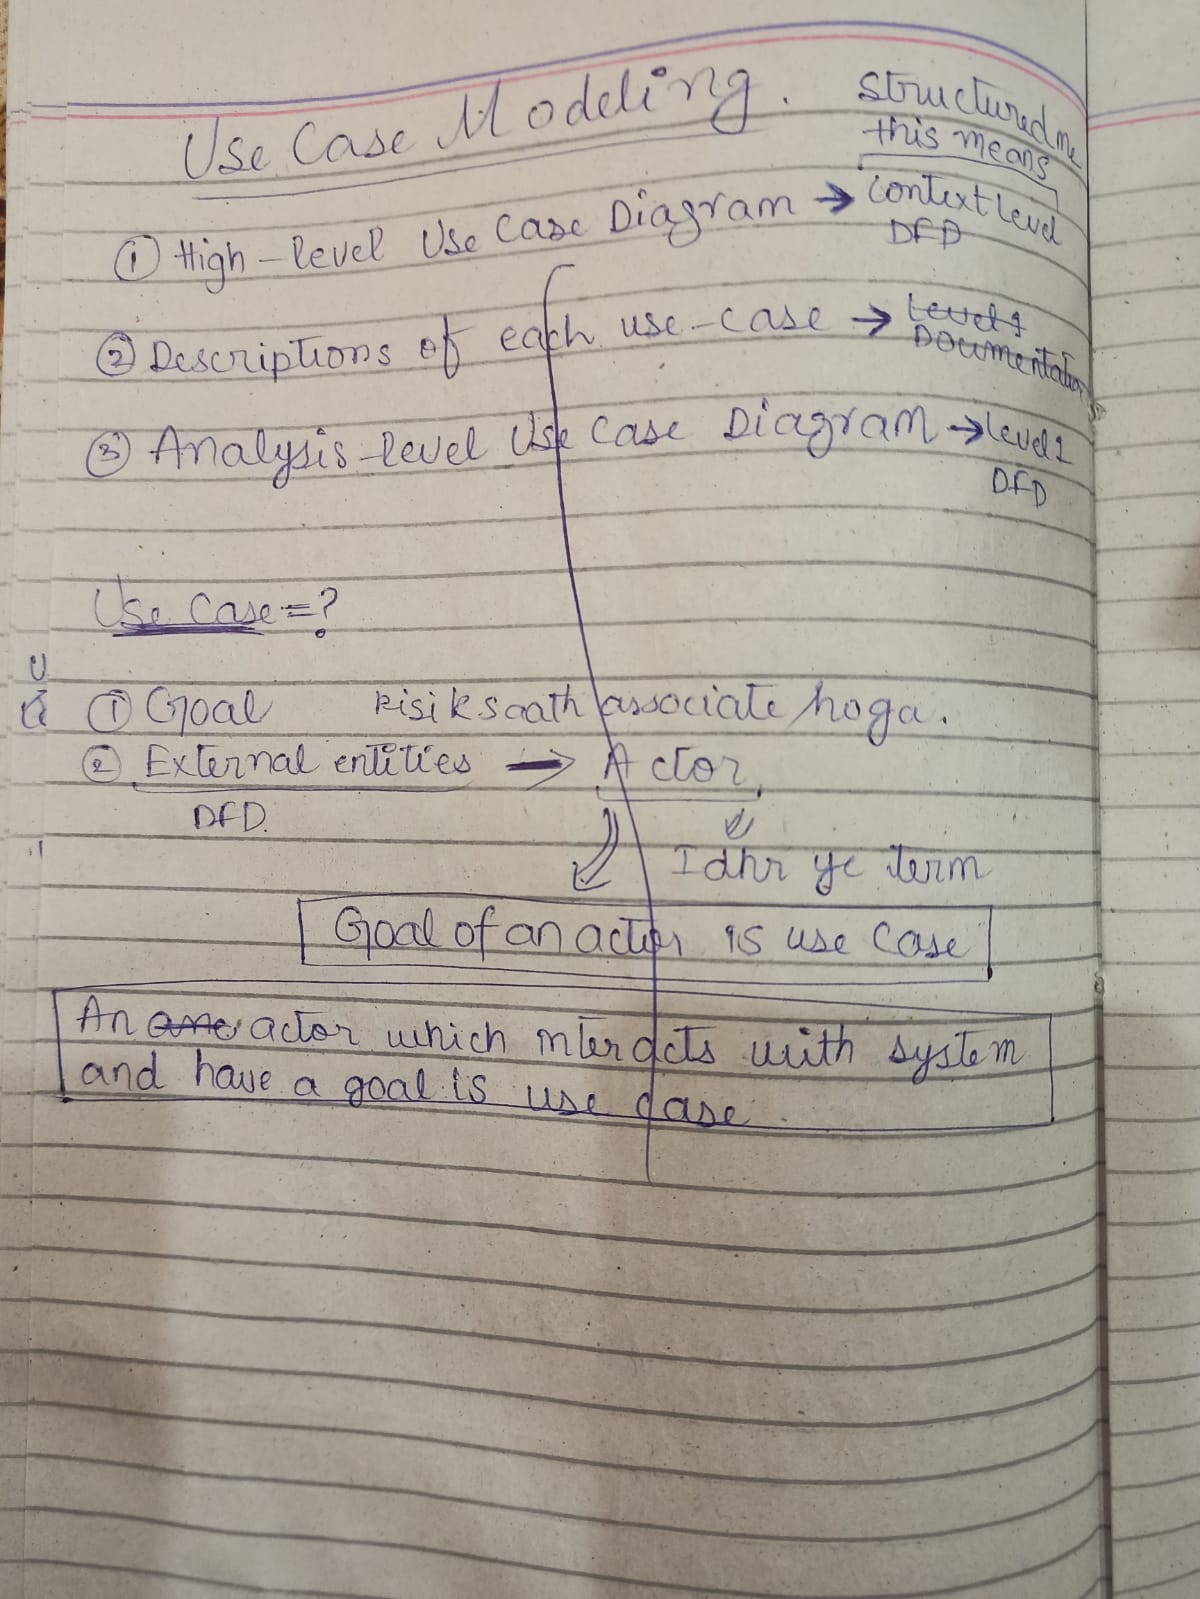 Use Case Modeling.
structured me
this means
① High-level Use Case Diagram → Context level
DFD
② Descriptions of each use-case → Level 1
Documentation
③ Analysis-level Use Case Diagram → Level 1
DFD
Use Case = ?
① Goal kisi k saath associate hoga.
② External entities → Actor
DFD.
Idhr ye term
Goal of an actor is use case
An one actor which interacts with system
and have a goal is use case.